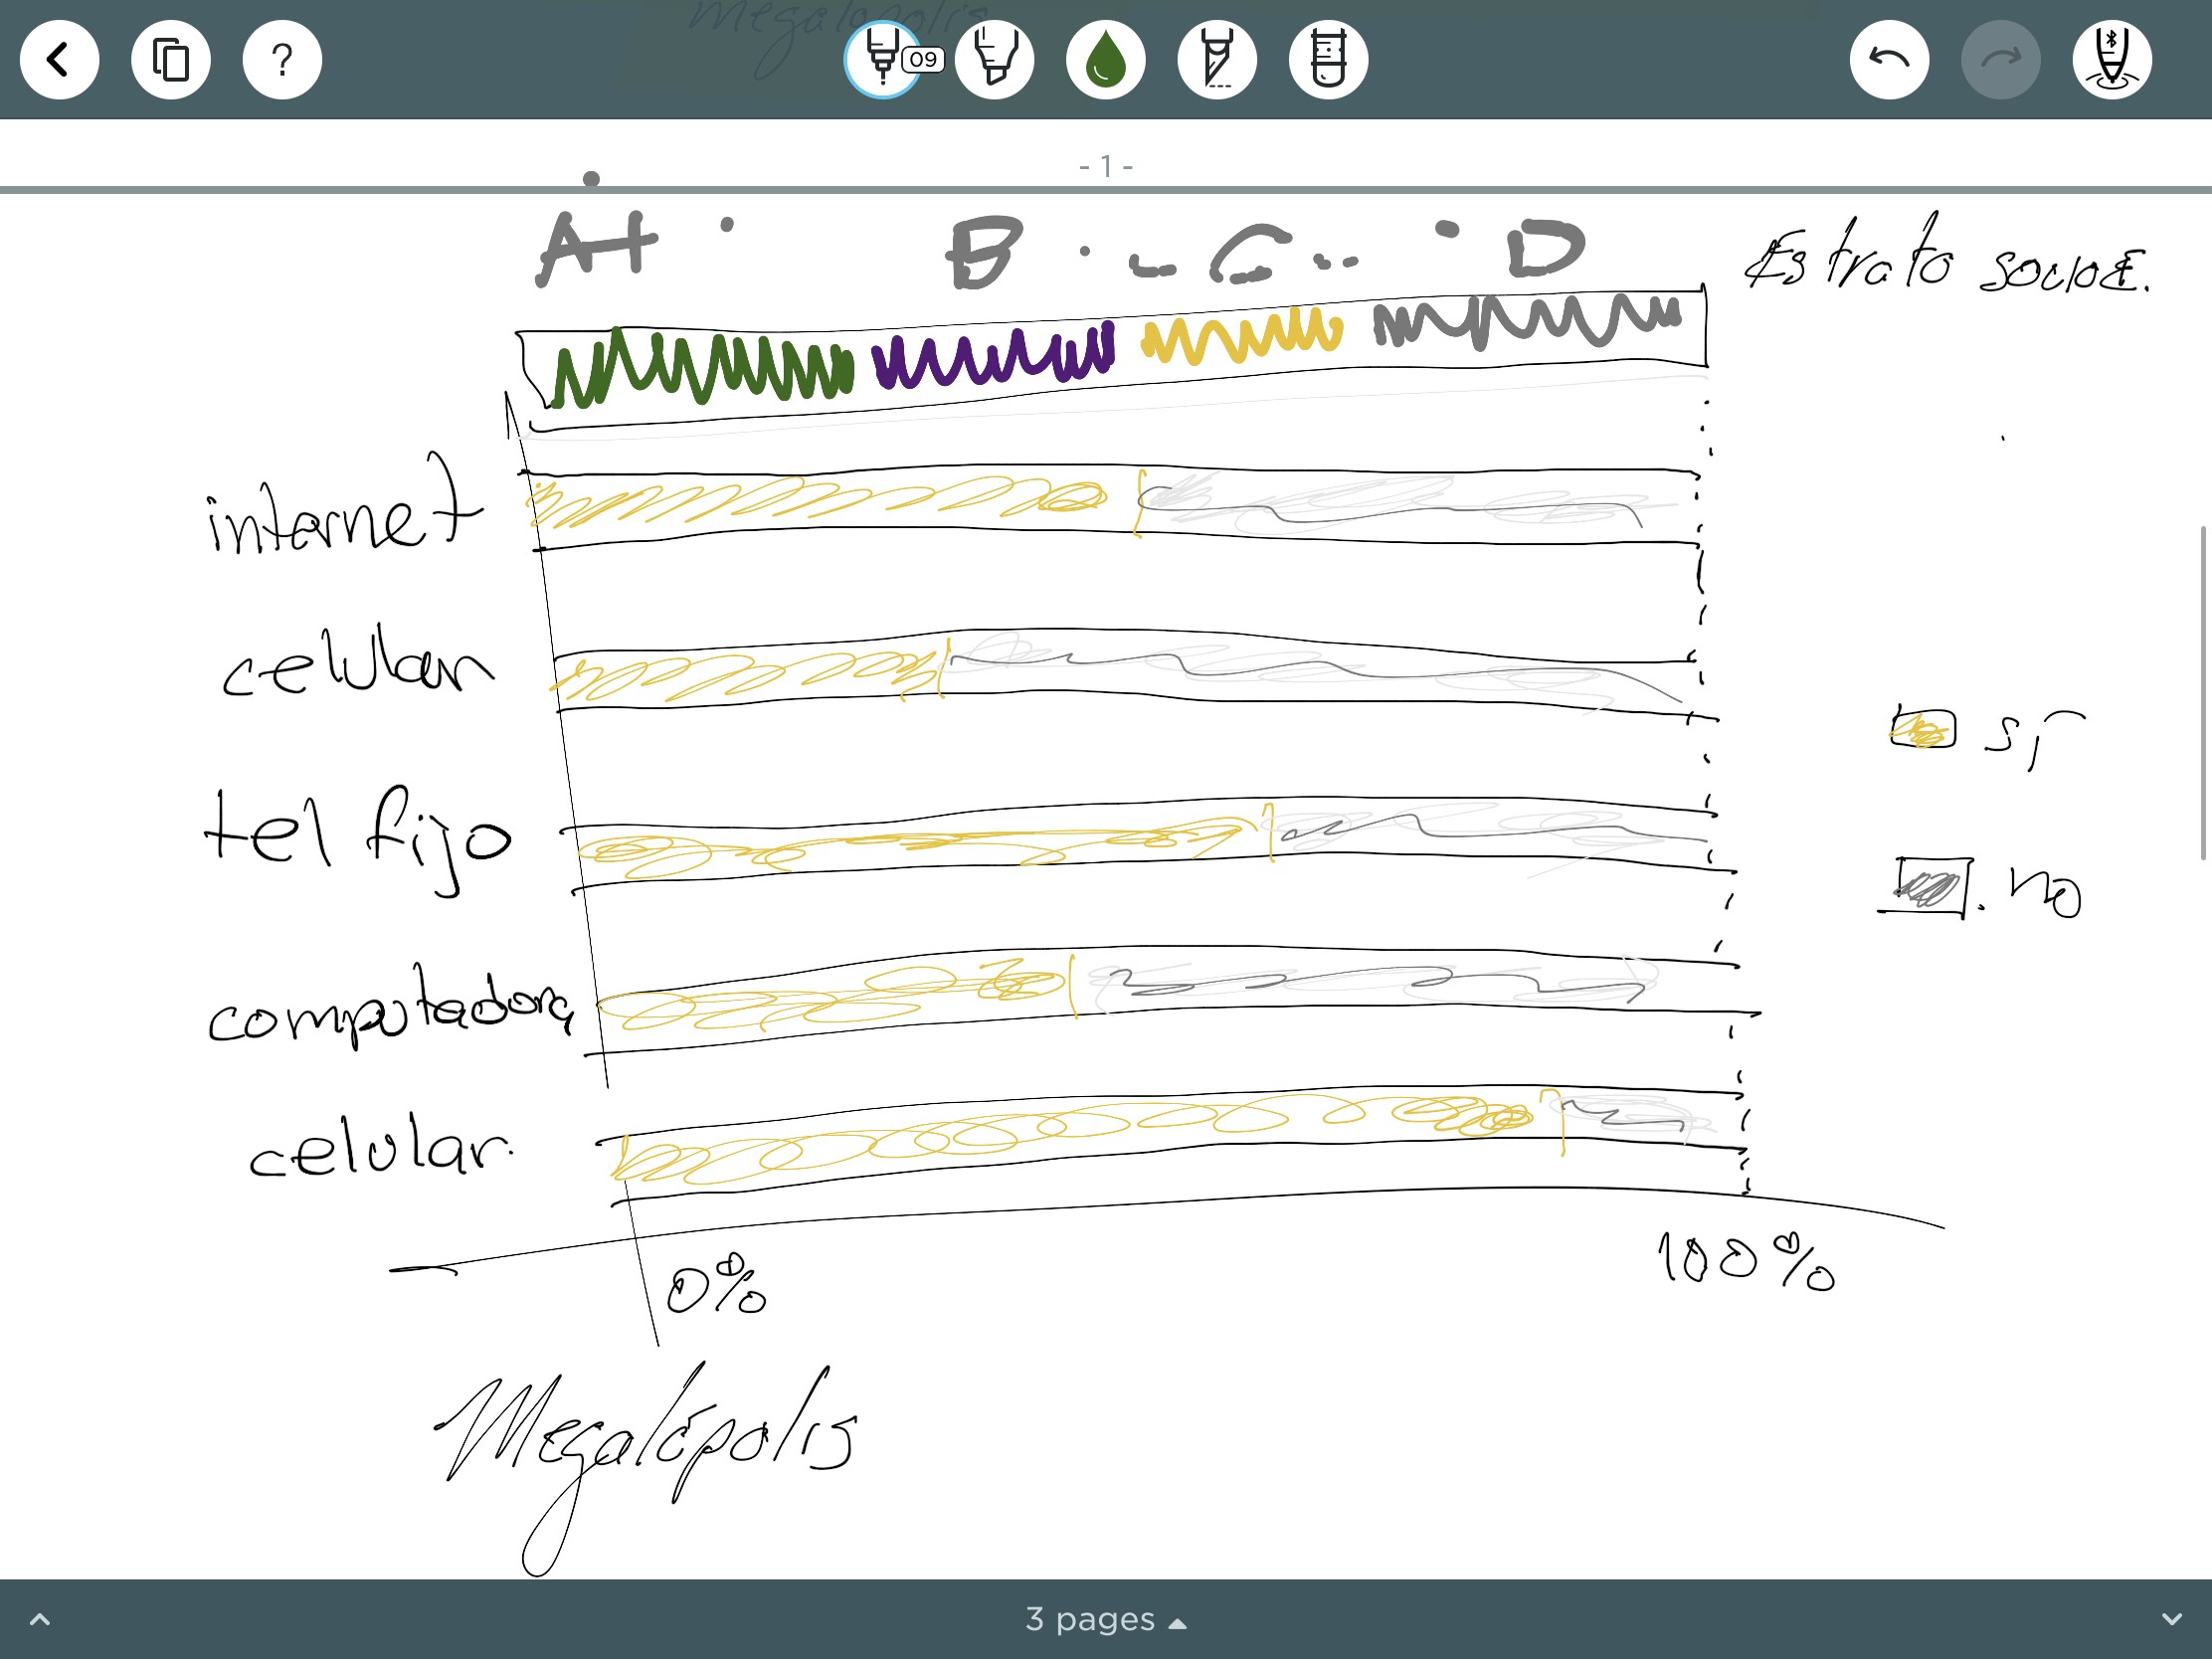 megalopolis
09
?
- 1 -
A+ B C D
Estrato social.
internet
celular
sí
tel fijo
no
computadora
celular.
0%
100%
Megalópolis
3 pages